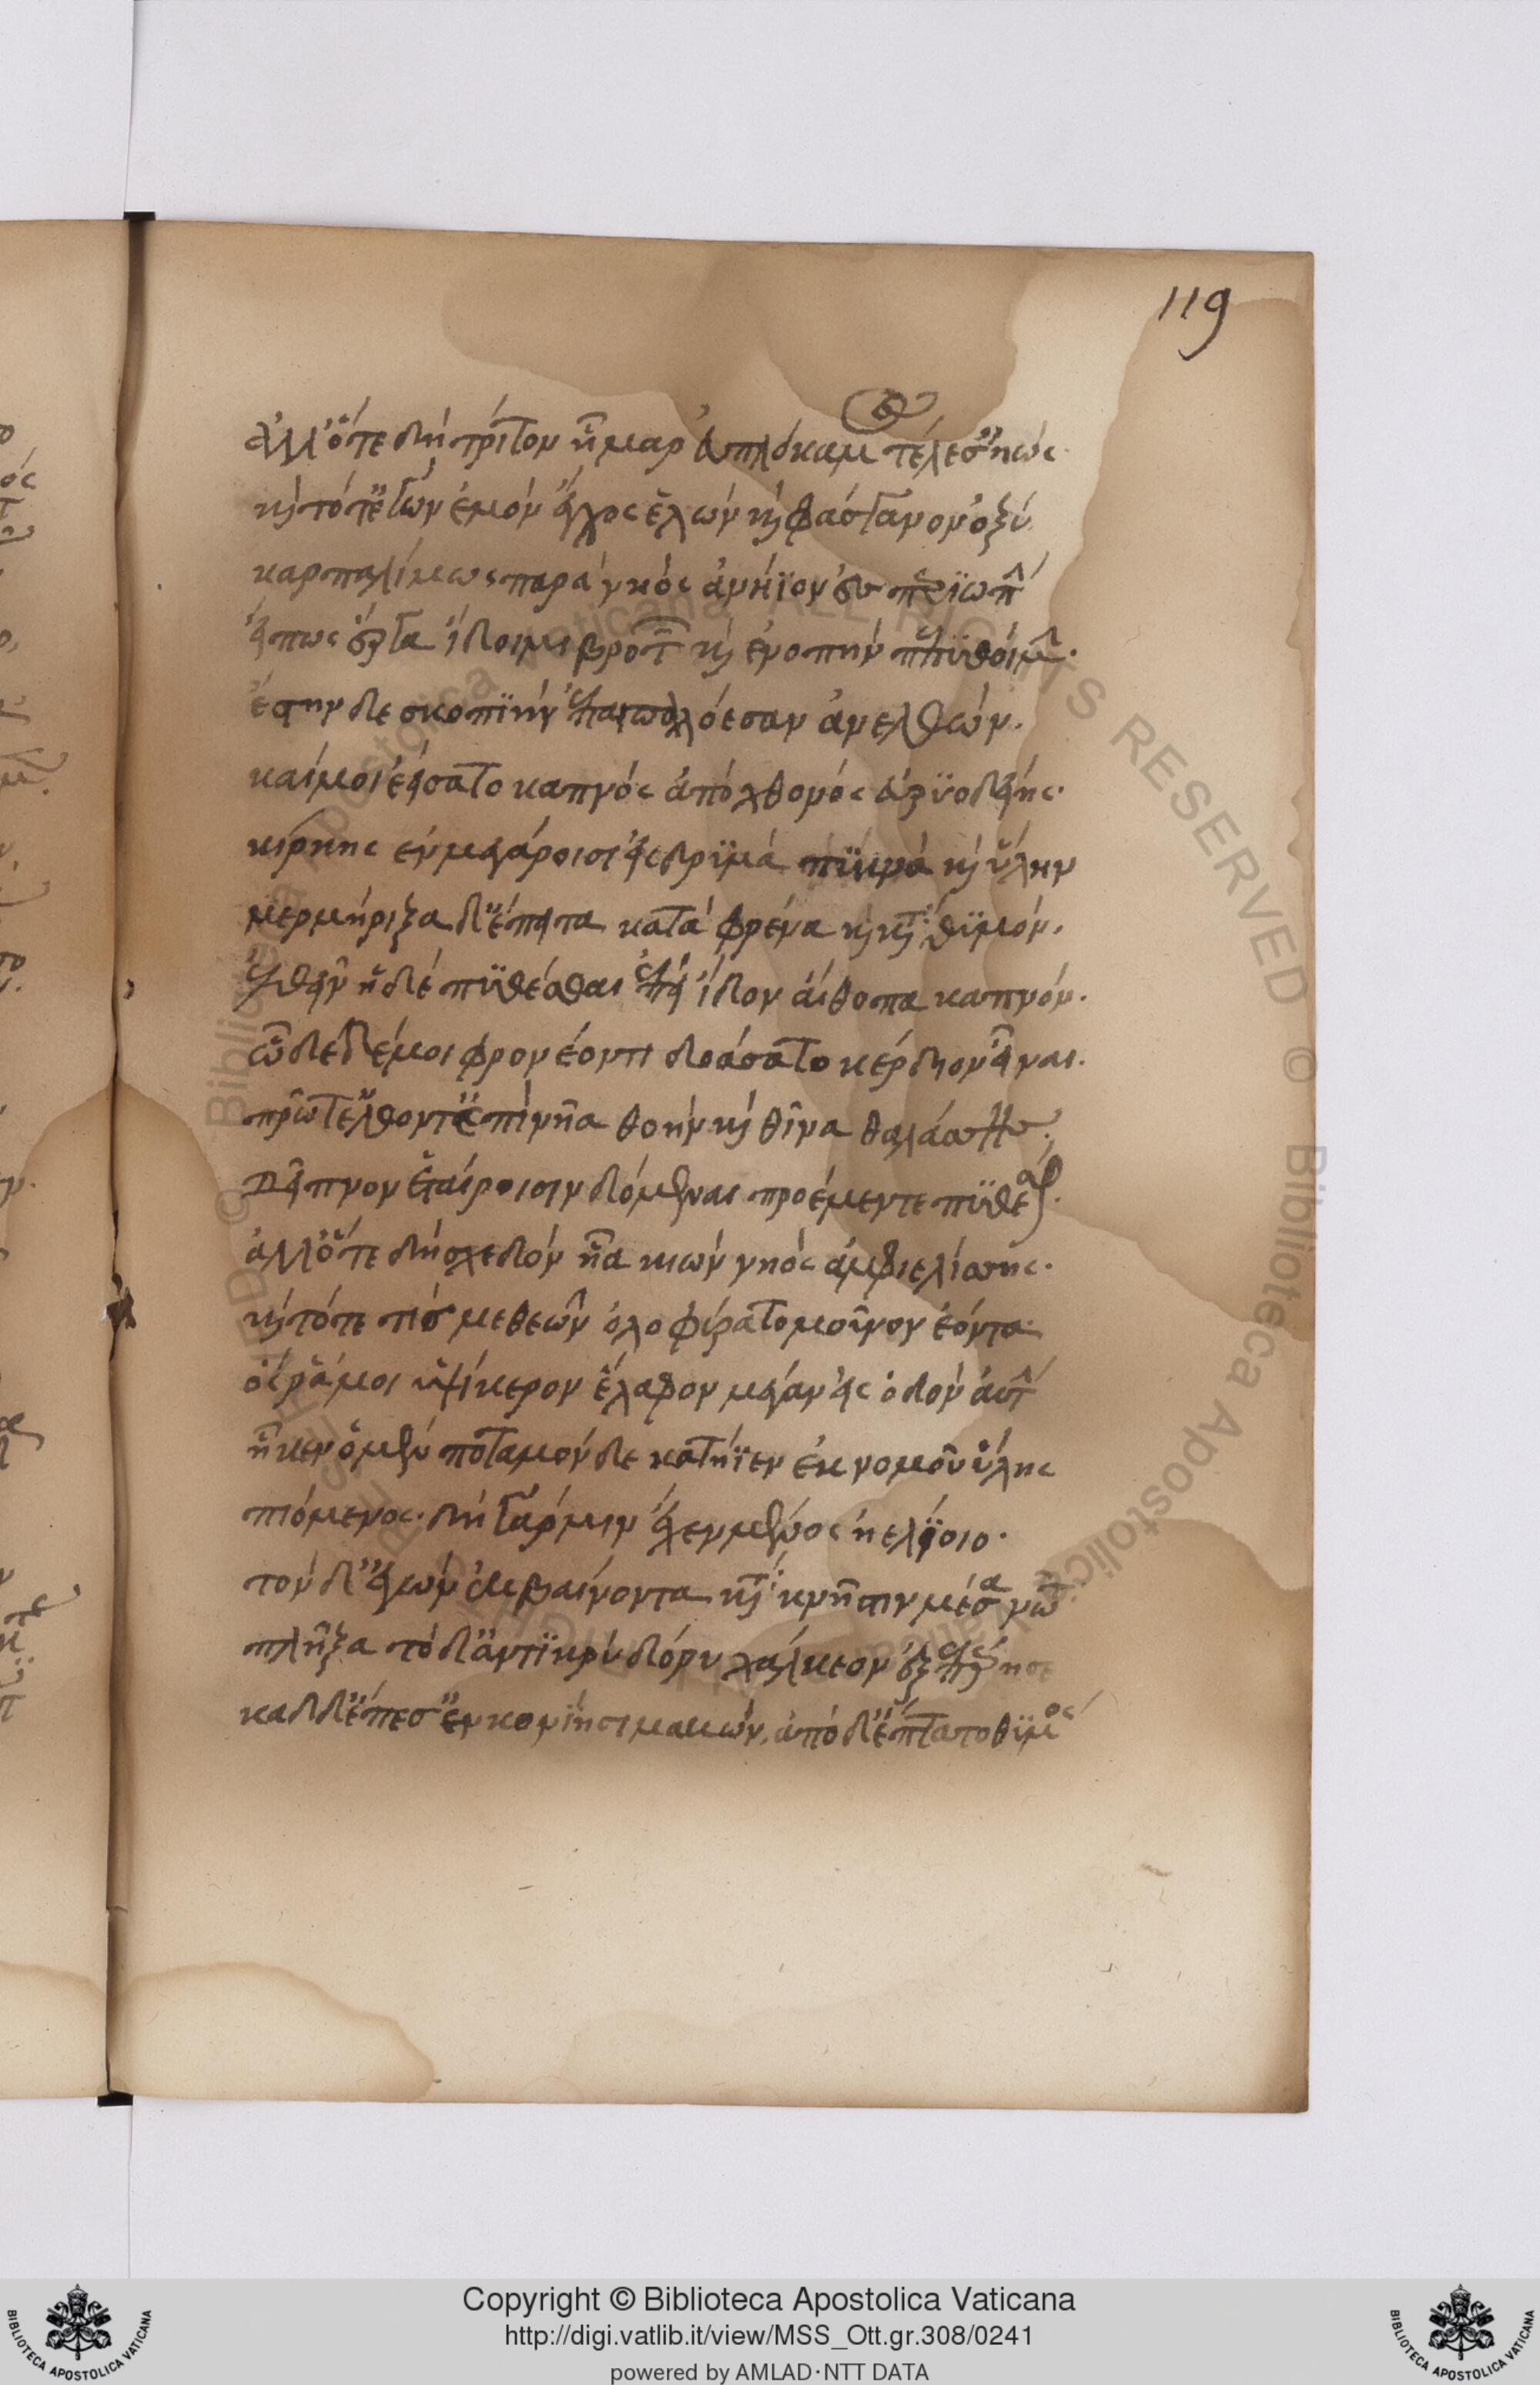 119
ἀλλ' ὅτε δὴ τρίτον ἦμαρ ἐϋπλόκαμος τέλεσ' ἠώς.
καὶ τότ' ἐγὼν ἐμὸν ἔγχος ἑλὼν καὶ φάσγανον ὀξὺ
καρπαλίμως παρὰ νηὸς ἀνήϊον ἐς περϊωπὴν
εἴπως ἔργα ἴδοιμι βροτῶν καὶ ἐνοπήν τε πϋθοίμην.
ἔστην δὲ σκοπϊὴν ἐς παιπαλόεσσαν ἀνελθών.
καί μοι ἐείσατο καπνὸς ἀπὸ χθονὸς εὐρϋοδείης.
κίρκης ἐν μεγάροισι διὰ δρϋμὰ πϋκνὰ καὶ ὕλην
μερμήριξα δ' ἔπειτα κατὰ φρένα καὶ κατὰ θϋμόν.
ἐλθεῖν ἠδὲ πϋθέσθαι ἐπεὶ ἴδον αἴθοπα καπνόν.
ὧδε δέ μοι φρονέοντι δοάσατο κέρδιον εἶναι.
πρῶτ' ἐλθόντ' ἐπὶ νῆα θοὴν καὶ θῖνα θαλάσσης.
δεῖπνον ἑταίροισιν δόμεναι προέμεν τε πϋθέσθαι.
ἀλλ' ὅτε δὴ σχεδὸν ἦα κιὼν νηὸς ἀμφιελίσσης.
καὶ τότε τίς με θεῶν ὀλοφύρατο μοῦνον ἐόντα
ὅς ῥά μοι ὑψίκερων ἔλαφον μέγαν εἰς ὁδὸν αὐτὴν
ἧκεν ὁ μὲν ποταμόνδε κατήϊεν ἐκ νομοῦ ὕλης
πιόμενος. δὴ γάρ μιν ἔχεν μένος ἠελίοιο.
τὸν δ' ἐγὼν ἐκβαίνοντα κατὰ κνῆστιν μέσα νῶτα
πλῆξα τὸ δ' ἀντϊκρὺ δόρυ χάλκεον ἐξεπέρησε
καδδ' ἔπεσ' ἐν κονίῃσι μακών. ἀπὸ δ' ἔπτατο θϋμός
Copyright © Biblioteca Apostolica Vaticana
http://digi.vatlib.it/view/MSS_Ott.gr.308/0241
powered by AMLAD·NTT DATA